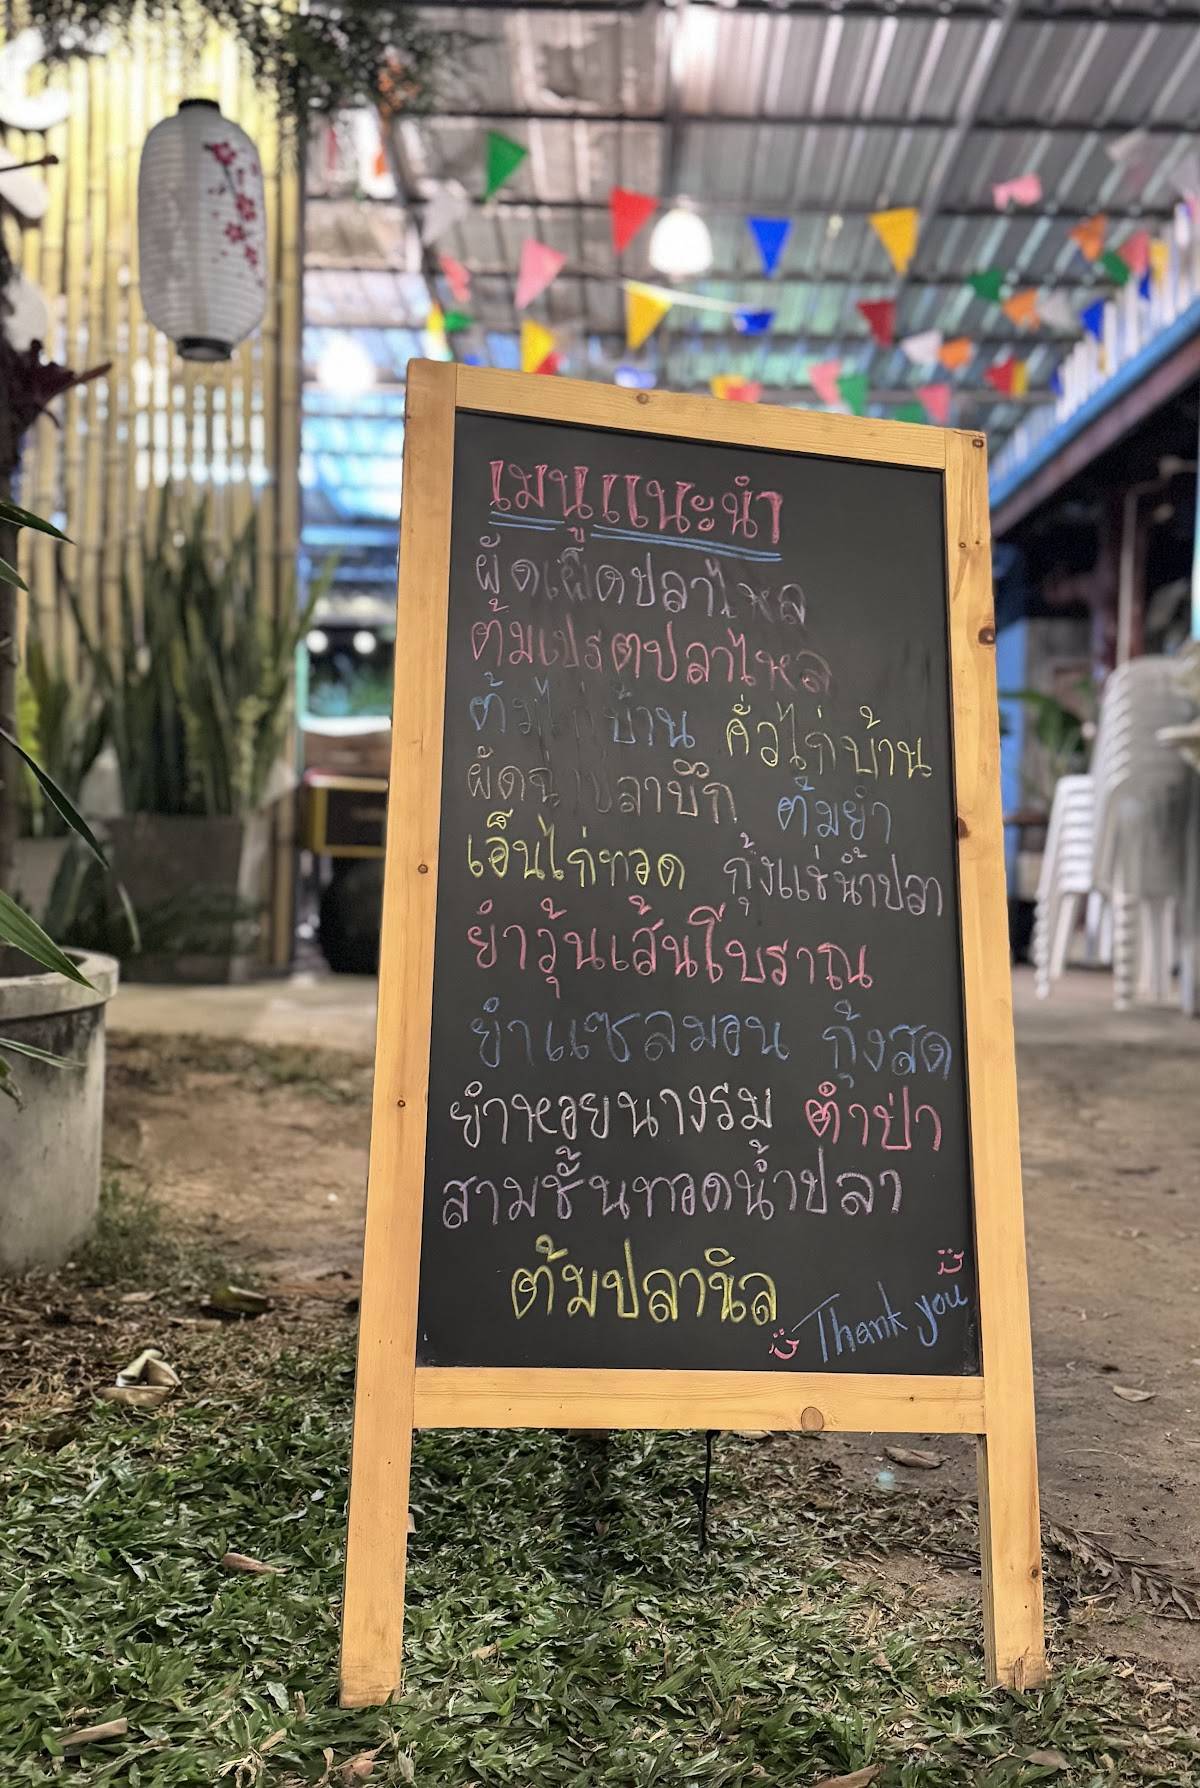 เมนูแนะนำ
ผัดเผ็ดปลาไหล
ต้มเปรตปลาไหล
ต้มไก่บ้าน คั่วไก่บ้าน
ผัดฉ่าปลาบึก ต้มยำ
เอ็นไก่ทอด กุ้งแช่น้ำปลา
ยำวุ้นเส้นโบราณ
ยำแซลมอน กุ้งสด
ยำหอยนางรม ตำป่า
สามชั้นทอดน้ำปลา
ต้มปลานิล
Thank you